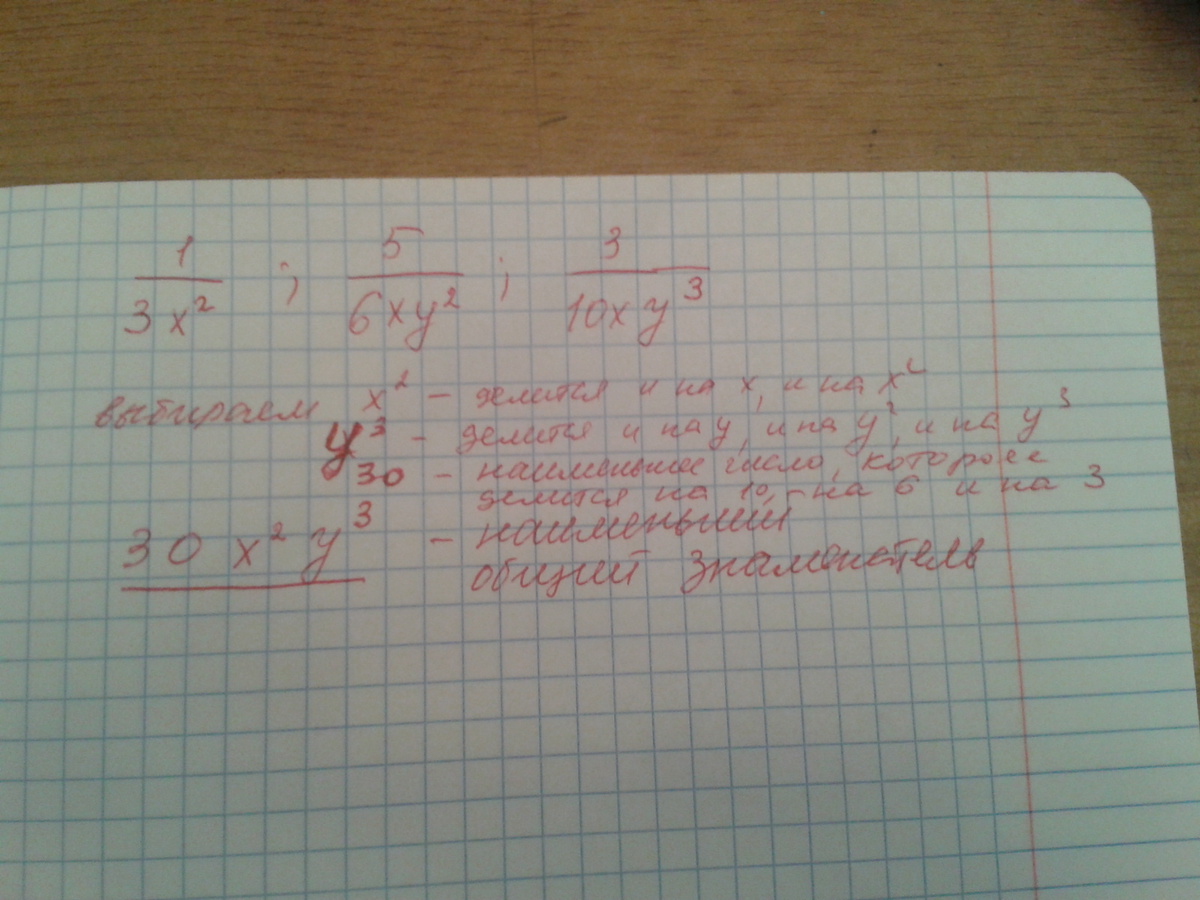 1/(3x²) ; 5/(6xy²) ; 3/(10xy³)
выбираем x² – делится и на x, и на x²
y³ – делится и на y, и на y², и на y³
30 – наименьшее число, которое
делится на 10, на 6 и на 3
30x²y³ – наименьший
общий знаменатель